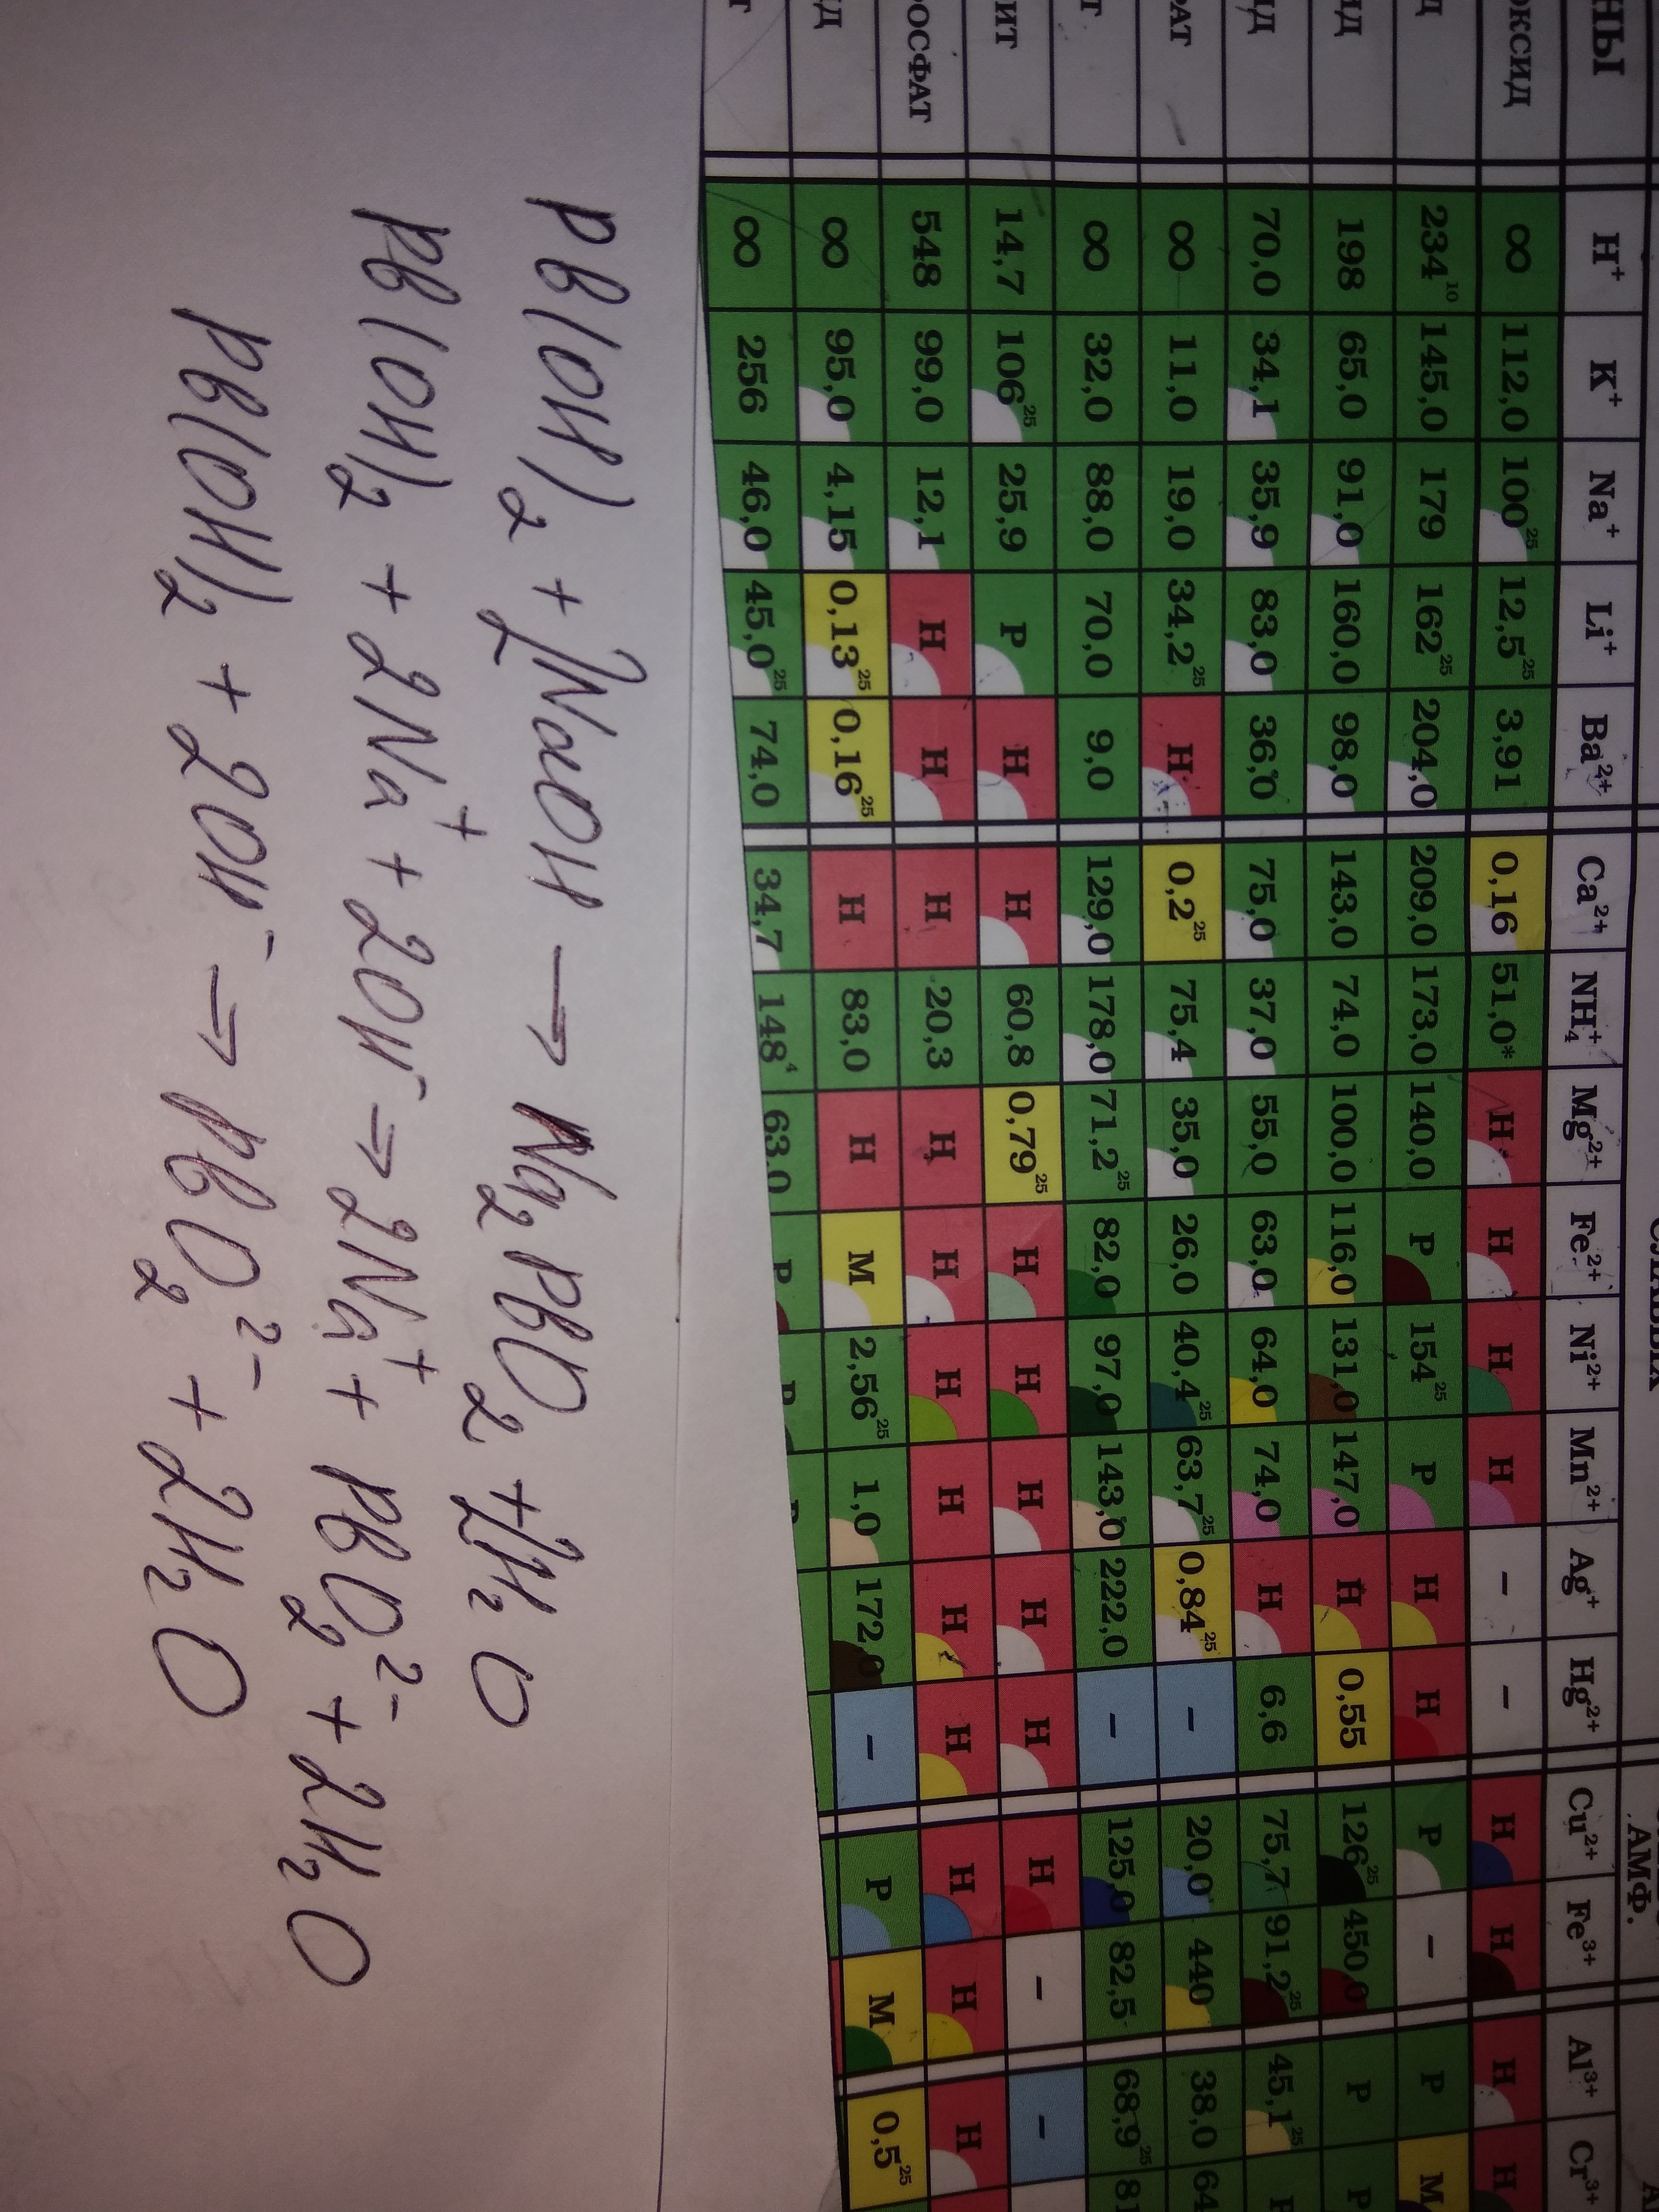 НЫ H⁺ K⁺ Na⁺ Li⁺ Ba²⁺ Ca²⁺ NH₄⁺ Mg²⁺ Fe²⁺ Ni²⁺ Mn²⁺ Ag⁺ Hg²⁺ Cu²⁺ Fe³⁺ Al³⁺ Cr³⁺
АМФ.
ОКСИД ∞ 112,0 100²⁵ 12,5²⁵ 3,91 0,16 51,0* Н Н Н Н – – Н Н Н Н
Д 234¹⁰ 145,0 179 162²⁵ 204,0 209,0 173,0 140,0 Р 154²⁵ Р Н Н Р – Р М
ИД 198 65,0 91,0 160,0 98,0 143,0 74,0 100,0 116,0 131,0 147,0 Н 0,55 126²⁵ 450,0 Р Р
ИД 70,0 34,1 35,9 83,0 36,0 75,0 37,0 55,0 63,0 64,0 74,0 Н 6,6 75,7 91,2²⁵ 45,1²⁵ Р
АТ ∞ 11,0 19,0 34,2²⁵ Н 0,2²⁵ 75,4 35,0 26,0 40,4²⁵ 63,7²⁵ 0,84²⁵ – 20,0 440 38,0 64
Т ∞ 32,0 88,0 70,0 9,0 129,0 178,0 71,2²⁵ 82,0 97,0 143,0 222,0 – 125,0 82,5 68,9²⁵ 81
ИТ 14,7 106²⁵ 25,9 Р Н Н 60,8 0,79²⁵ Н Н Н Н Н Н – –
ОСФАТ 548 99,0 12,1 Н Н Н 20,3 Н Н Н Н Н Н Н Н Н
Д ∞ 95,0 4,15 0,13²⁵ 0,16²⁵ Н 83,0 Н М 2,56²⁵ 1,0 172,0 – Р М 0,5²⁵
Т ∞ 256 46,0 45,0²⁵ 74,0 34,7 148⁴ 63,0 Р
Pb(OH)₂ + 2NaOH → Na₂PbO₂ + 2H₂O
Pb(OH)₂ + 2Na⁺ + 2OH⁻ → 2Na⁺ + PbO₂²⁻ + 2H₂O
Pb(OH)₂ + 2OH⁻ → PbO₂²⁻ + 2H₂O